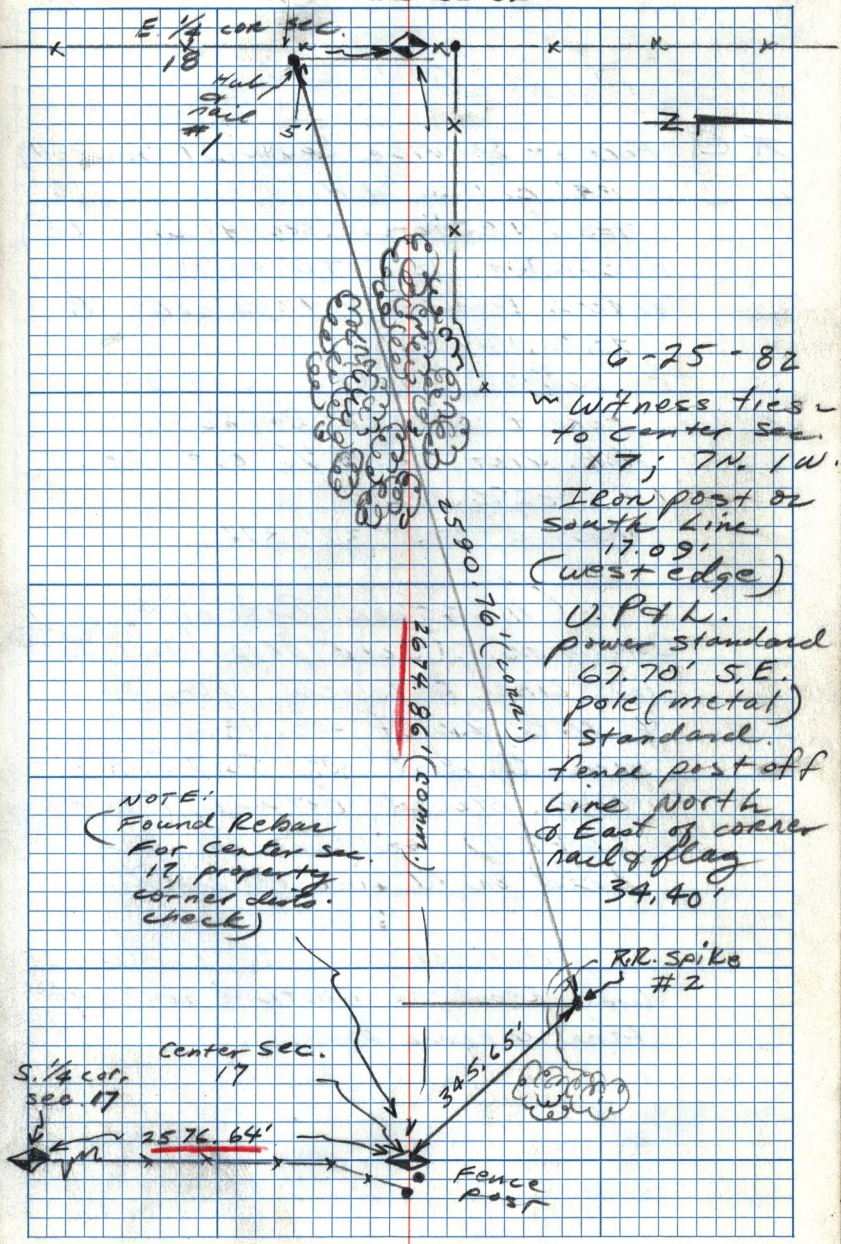 E. 1/4 cor sec.
18
Hub
&
nail
#1
5'
N
6-25-82
Witness ties
to center sec.
17; 7N. 1W.
Iron post on
South Line
17.09'
(west edge)
U.P.&L.
power standard
67.70' S.E.
pole (metal)
standard.
fence post off
Line North
& East of corner
nail & flag
34.40'
2590.76' (corr.)
2674.86' (comm.)
NOTE:
(Found Rebar
For Center sec.
17, property
corner dists.
check)
R.R. Spike
#2
345.65'
Center Sec.
17
S. 1/4 cor.
sec. 17
2576.64'
Fence
post